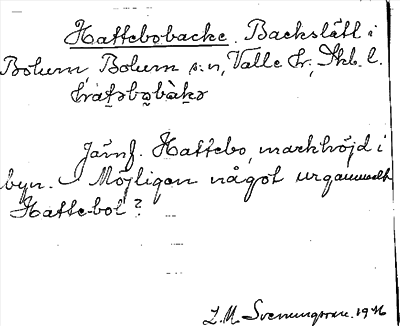 Hattebobacke. Backslätt i
Bolum, Bolum s:n, Valle hr, Skb. l.
Jämf. Hattebo, markhöjd i
byn. Möjligen något urgammalt
Hattebol?
L.M. Svenungsson. 19